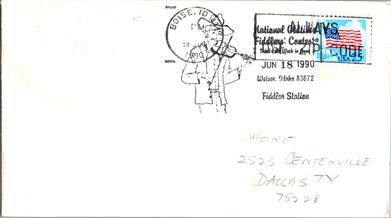 BOISE, ID
PM
18 JUN
1990
National Oldtime
Fiddlers' Contest
ALWAYS
ZIP CODE
JUN 18 1990
Weiser, Idaho 83672
Fiddler Station
USA 25
SHORE
2525 CENTERVILLE
DALLAS TX
75228